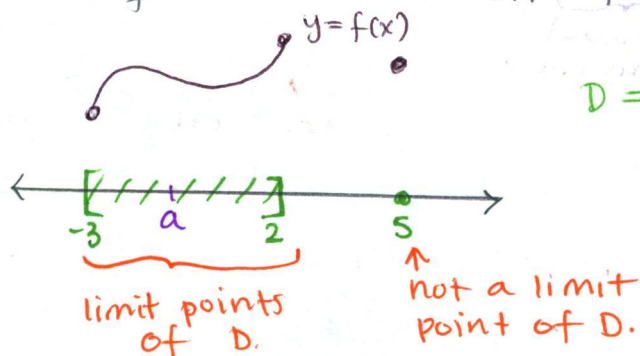 y = f(x)
D =
-3 a 2 5
limit points
of D.
not a limit
point of D.